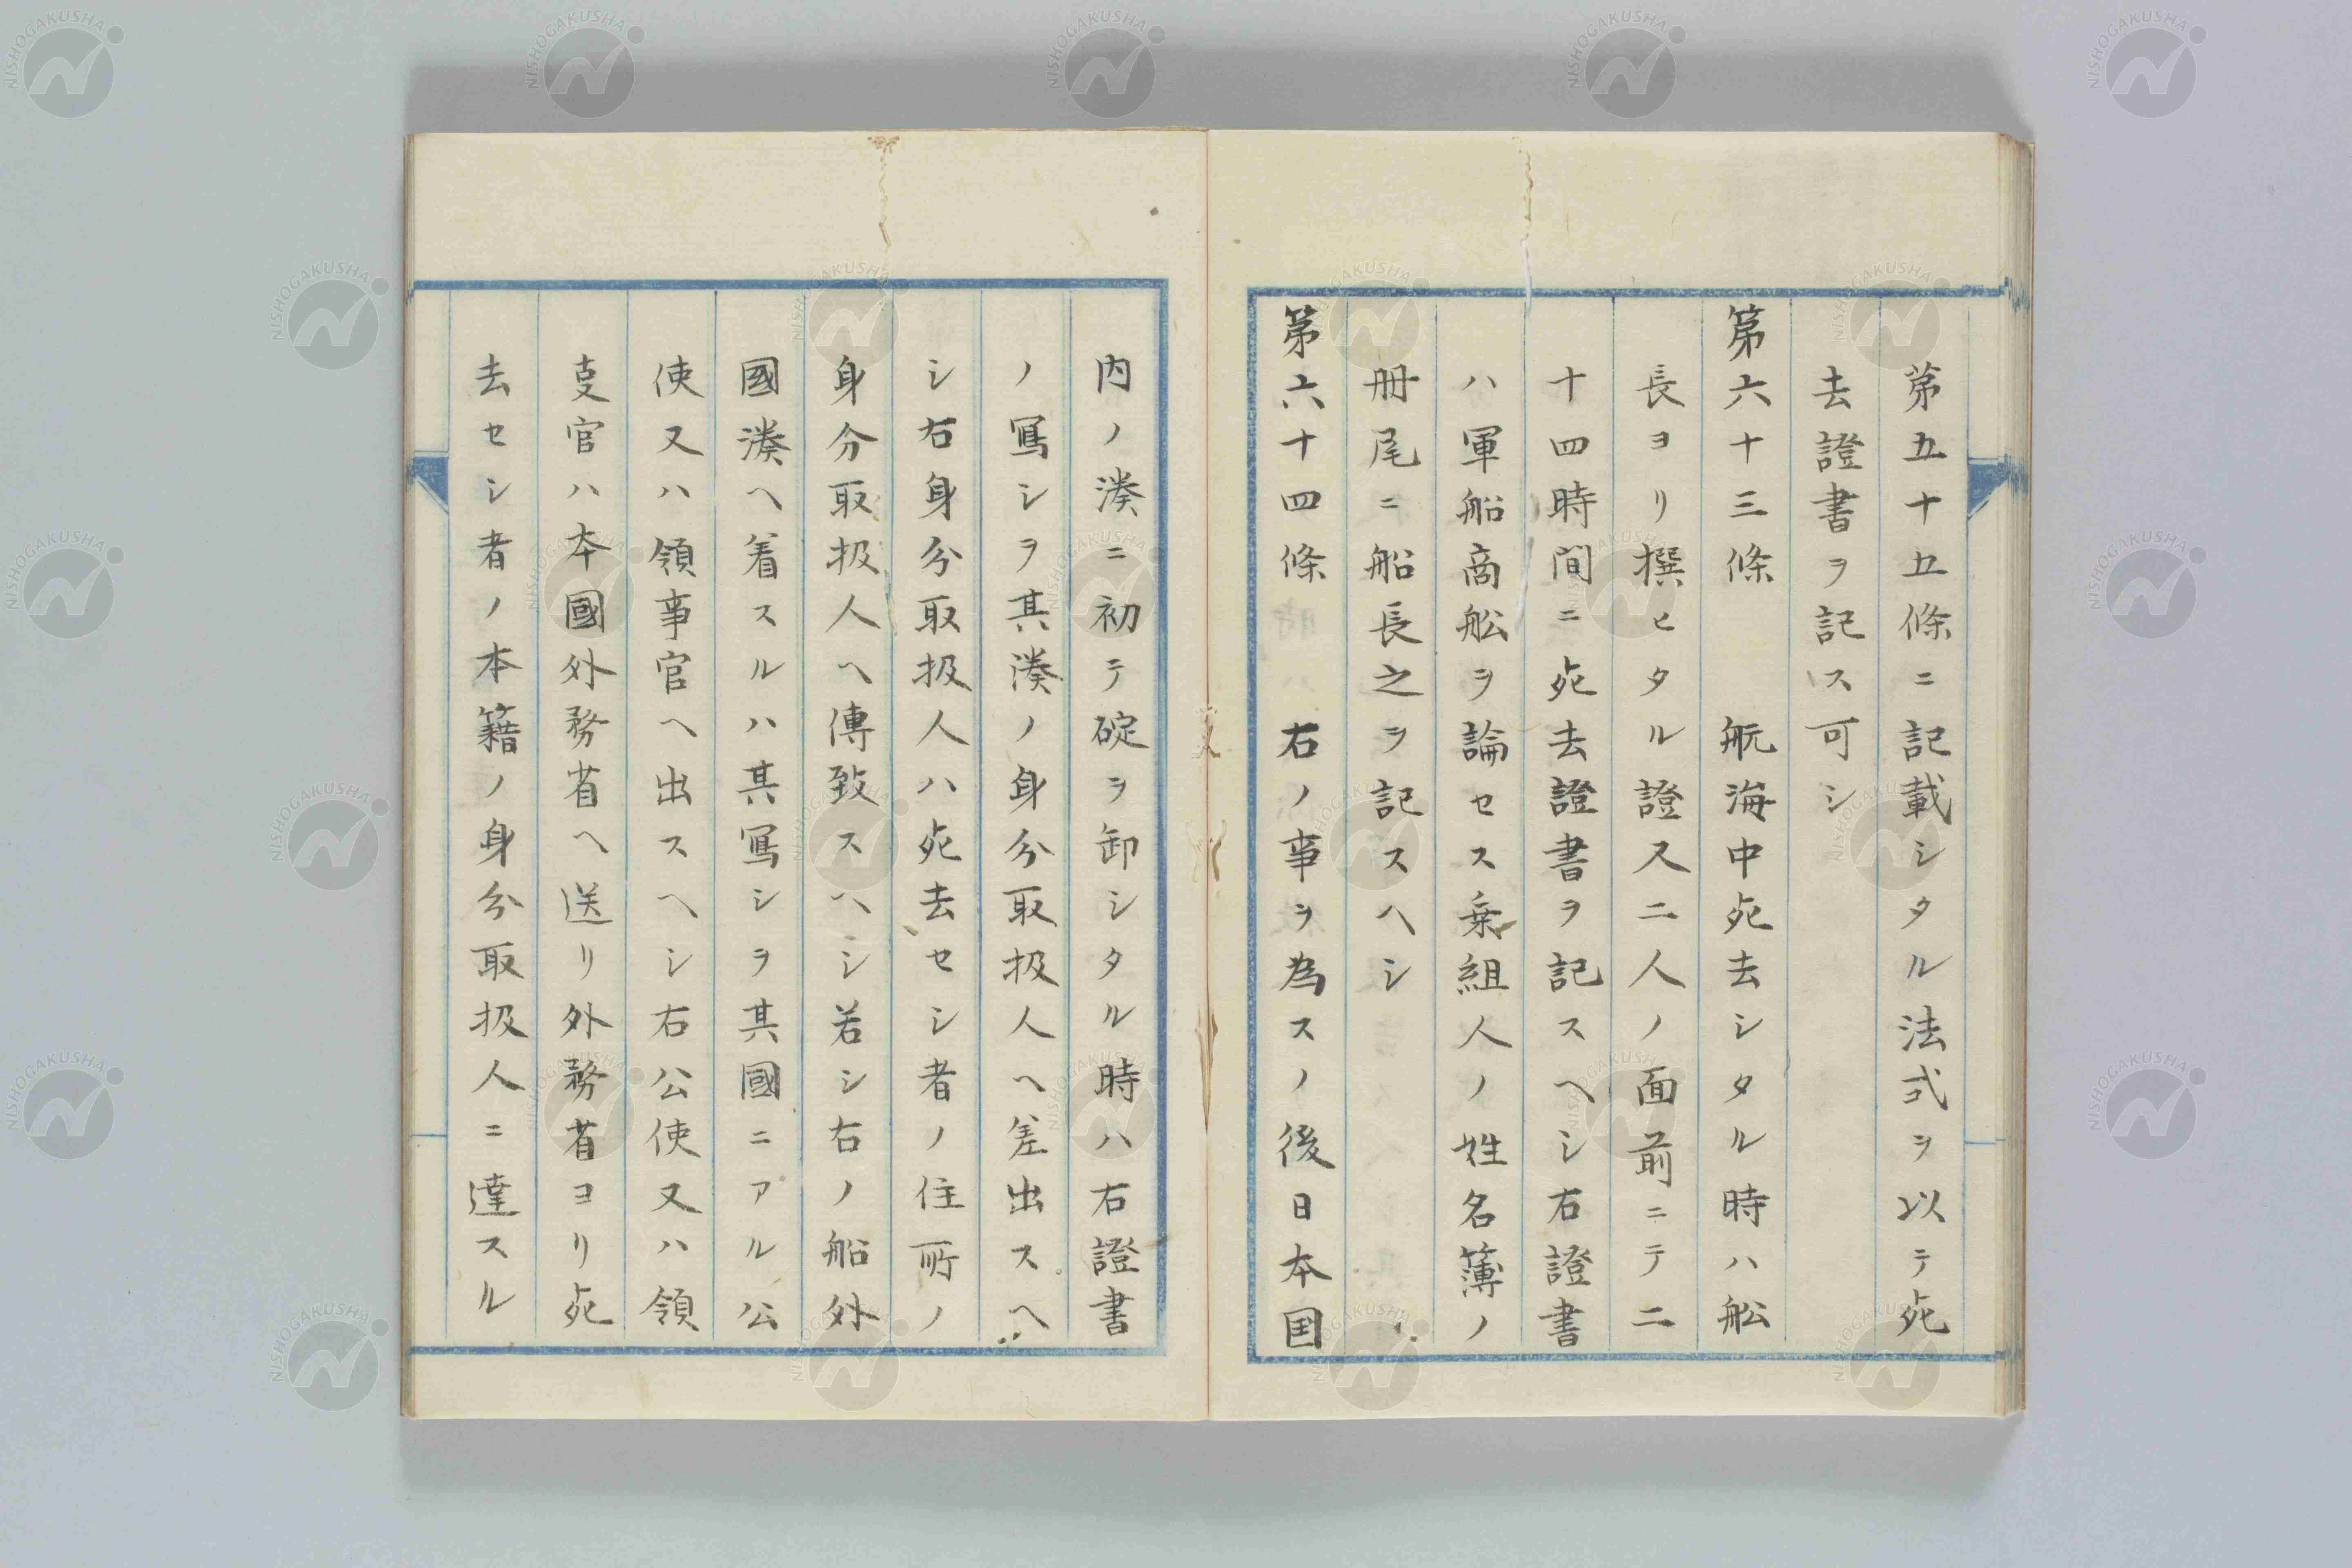 第五十五條ニ記載シタル法式ヲ以テ死
去證書ヲ記ス可シ
第六十三條　航海中死去シタル時ハ舩
長ヨリ撰ヒタル證又二人ノ面前ニテ二
十四時間ニ死去證書ヲ記スヘシ右證書
ハ軍船商舩ヲ論セス乗組人ノ姓名簿ノ
冊尾ニ船長之ヲ記スヘシ
第六十四條　右ノ事ヲ為スノ後日本国
内ノ湊ニ初テ碇ヲ卸シタル時ハ右證書
ノ寫シヲ其湊ノ身分取扱人ヘ差出スヘ
シ右身分取扱人ハ死去セシ者ノ住所ノ
身分取扱人ヘ傳致スヘシ若シ右ノ船外
國湊ヘ着スルハ其寫シヲ其國ニアル公
使又ハ領事官ヘ出スヘシ右公使又ハ領
叓官ハ本國外務省ヘ送リ外務省ヨリ死
去セシ者ノ本籍ノ身分取扱人ニ達スル
NISHOGAKUSHA